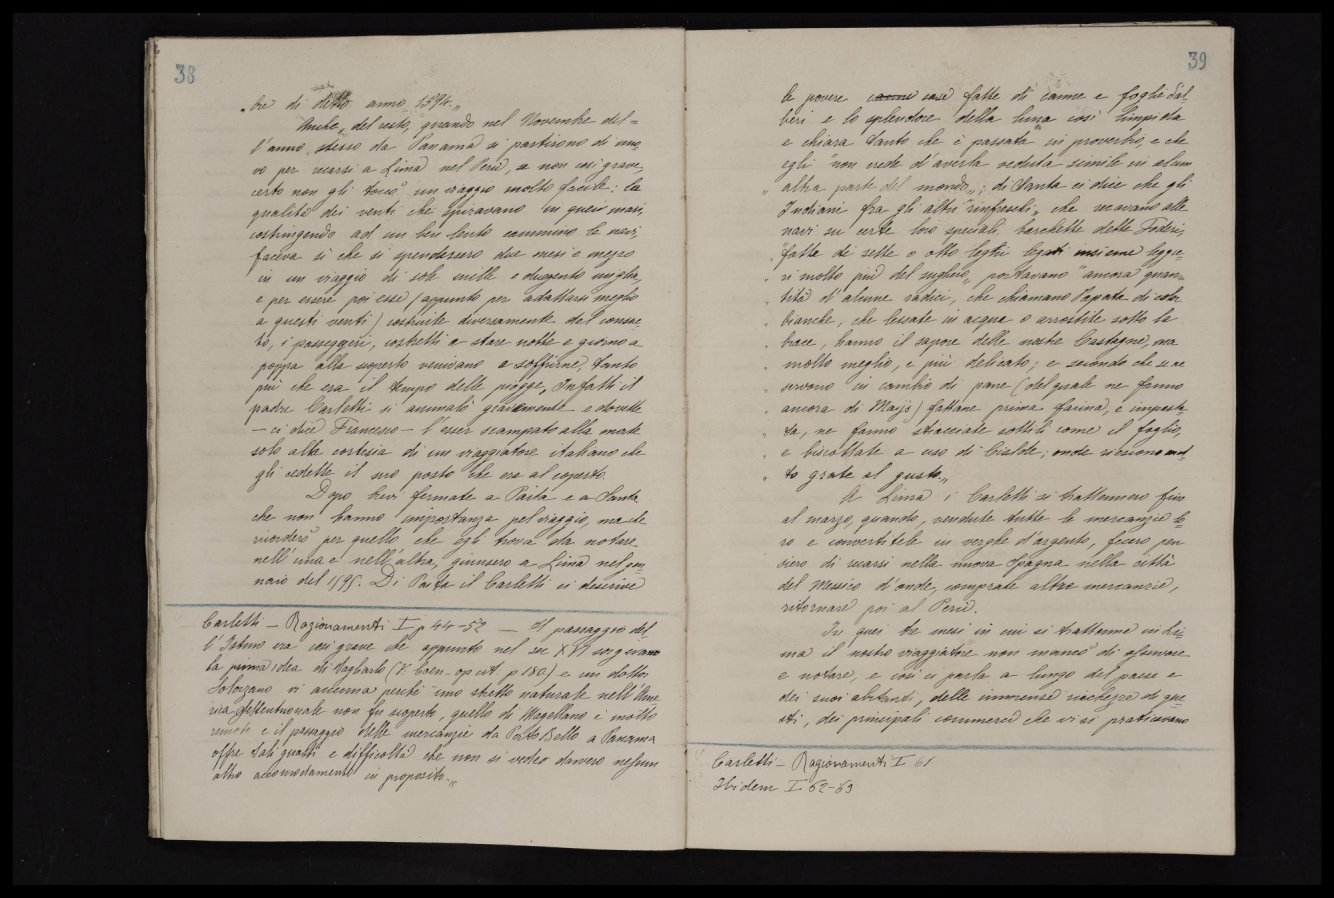 38
„bre di detto anno 1594.„
Anche, del resto, quando nel Novembre del-
l'anno stesso da Panamà si partirono di nuo-
vo per recarsi a Lima nel Perù, se non così grave,
certo non gli toccò un viaggio molto facile: la
qualità dei venti che spiravano in quei mari,
costringendo ad un ben lento cammino le navi,
faceva sì che si spendessero due mesi e mezzo
in un viaggio di sole mille e dugento miglia,
e per essere poi esse (appunto per adattarsi meglio
a questi venti) costruite diversamente del consue-
to, i passeggeri, costretti a stare notte e giorno a
poppa alla scoperto venivano a soffrirne, tanto
più che era il tempo delle piogge. Infatti il
padre Carletti si ammalò gravemente e dovette
— ci dice Francesco — l'esser scampato alla morte
solo alla cortesia di un viaggiatore italiano che
gli cedette il suo posto che era al coperto.
Dopo brevi fermate a Paita e a Santa
che non hanno importanza pel viaggio, ma che
ricorderò per quello che egli trova da notare
nell'una e nell'altra, giunsero a Lima nel gen-
naio del 1595. Di Paita il Carletti ci descrive
Carletti — Ragionamenti I p 44-52 — Il passaggio del-
l'Istmo era così grave che appunto nel sec. XVI sorgevano
la prima idea di tagliarlo (V. Coen - op cit. p 180) e un dottor
Solorzano vi accenna perchè "uno stretto naturale nell'Ame
rica Settentrionale non fu scoperto, quello di Magellano è molto
remoto e il passaggio delle mercanzie da Porto Bello a Panama
offre tali guasti e difficoltà che non si vedea davvero nessun
altro accomodamento in proposito.„
39
le povere canne case fatte di canne e foglie d'al-
beri e lo splendore della luna così limpida
e chiara tanto che è passata in proverbio, e che
egli "non crede d'averla veduta simile in alcun
„ altra parte del mondo„; di Santa ci dice che gli
Indiani fra gli altri "rinfreschi„ che recavano alle
navi su certe loro speciali barchette dette Foderi,
"fatte di sette o otto legni legati insieme legge-
ri molto più del sughero„ portavano "ancora quan-
„ tità d'alcune radici, che chiamano Papate di color
„ bianche, che lessate in acqua o arrostite sotto la
„ brace, hanno il sapore delle nostre Castagne, ma
„ molto meglio, e più delicato; e secondo che se ne
„ servono in cambio di pane (del quale ne fanno
„ ancora di Mayis) fattane prima farina, e imposta-
„ ta, ne fanno stacciate sottili come il foglio,
„ e biscottate a uso di Cialde; onde riescono mol-
„ to grate al gusto.„
A Lima i Carletti si trattennero fino
al marzo, quando, vendute tutte le mercanzie lo-
ro e convertitele in verghe d'argento, fecero pen
siero di recarsi nella nuova Spagna nella città
del Messico d'onde, comprate altre mercanzie,
ritornare poi al Perù.
In quei tre mesi in cui si trattenne in Li-
ma il nostro viaggiatore non mancò di osservare
e notare, e così ci parla a lungo del paese e
dei suoi abitanti, delle immense ricchezze di que
sti, dei principali commerci che vi si praticavano
Carletti — Ragionamenti I 61
Ibidem I 62-63